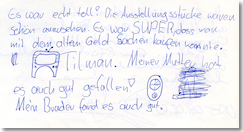 Es war echt toll! Die Ausstellungsstücke waren
schön anzusehen. Es war SUPER, dass man
mit dem alten Geld Sachen kaufen konnte.
Tilman. Meiner Mutter hat
es auch gut gefallen!
Mein Bruder fand es auch gut.